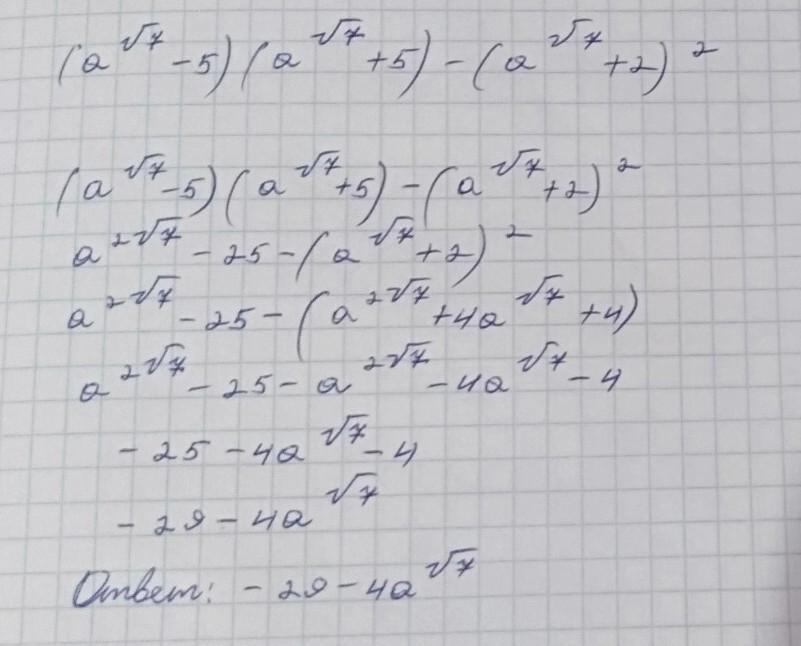 (a^√7 - 5)(a^√7 + 5) - (a^√7 + 2)^2
(a^√7 - 5)(a^√7 + 5) - (a^√7 + 2)^2
a^2√7 - 25 - (a^√7 + 2)^2
a^2√7 - 25 - (a^2√7 + 4a^√7 + 4)
a^2√7 - 25 - a^2√7 - 4a^√7 - 4
- 25 - 4a^√7 - 4
- 29 - 4a^√7
Ответ: - 29 - 4a^√7